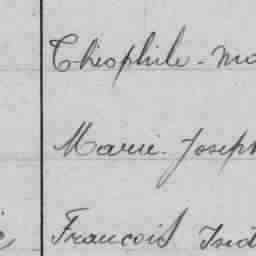 Théophile - Ma
Marie - Joseph
François Isid